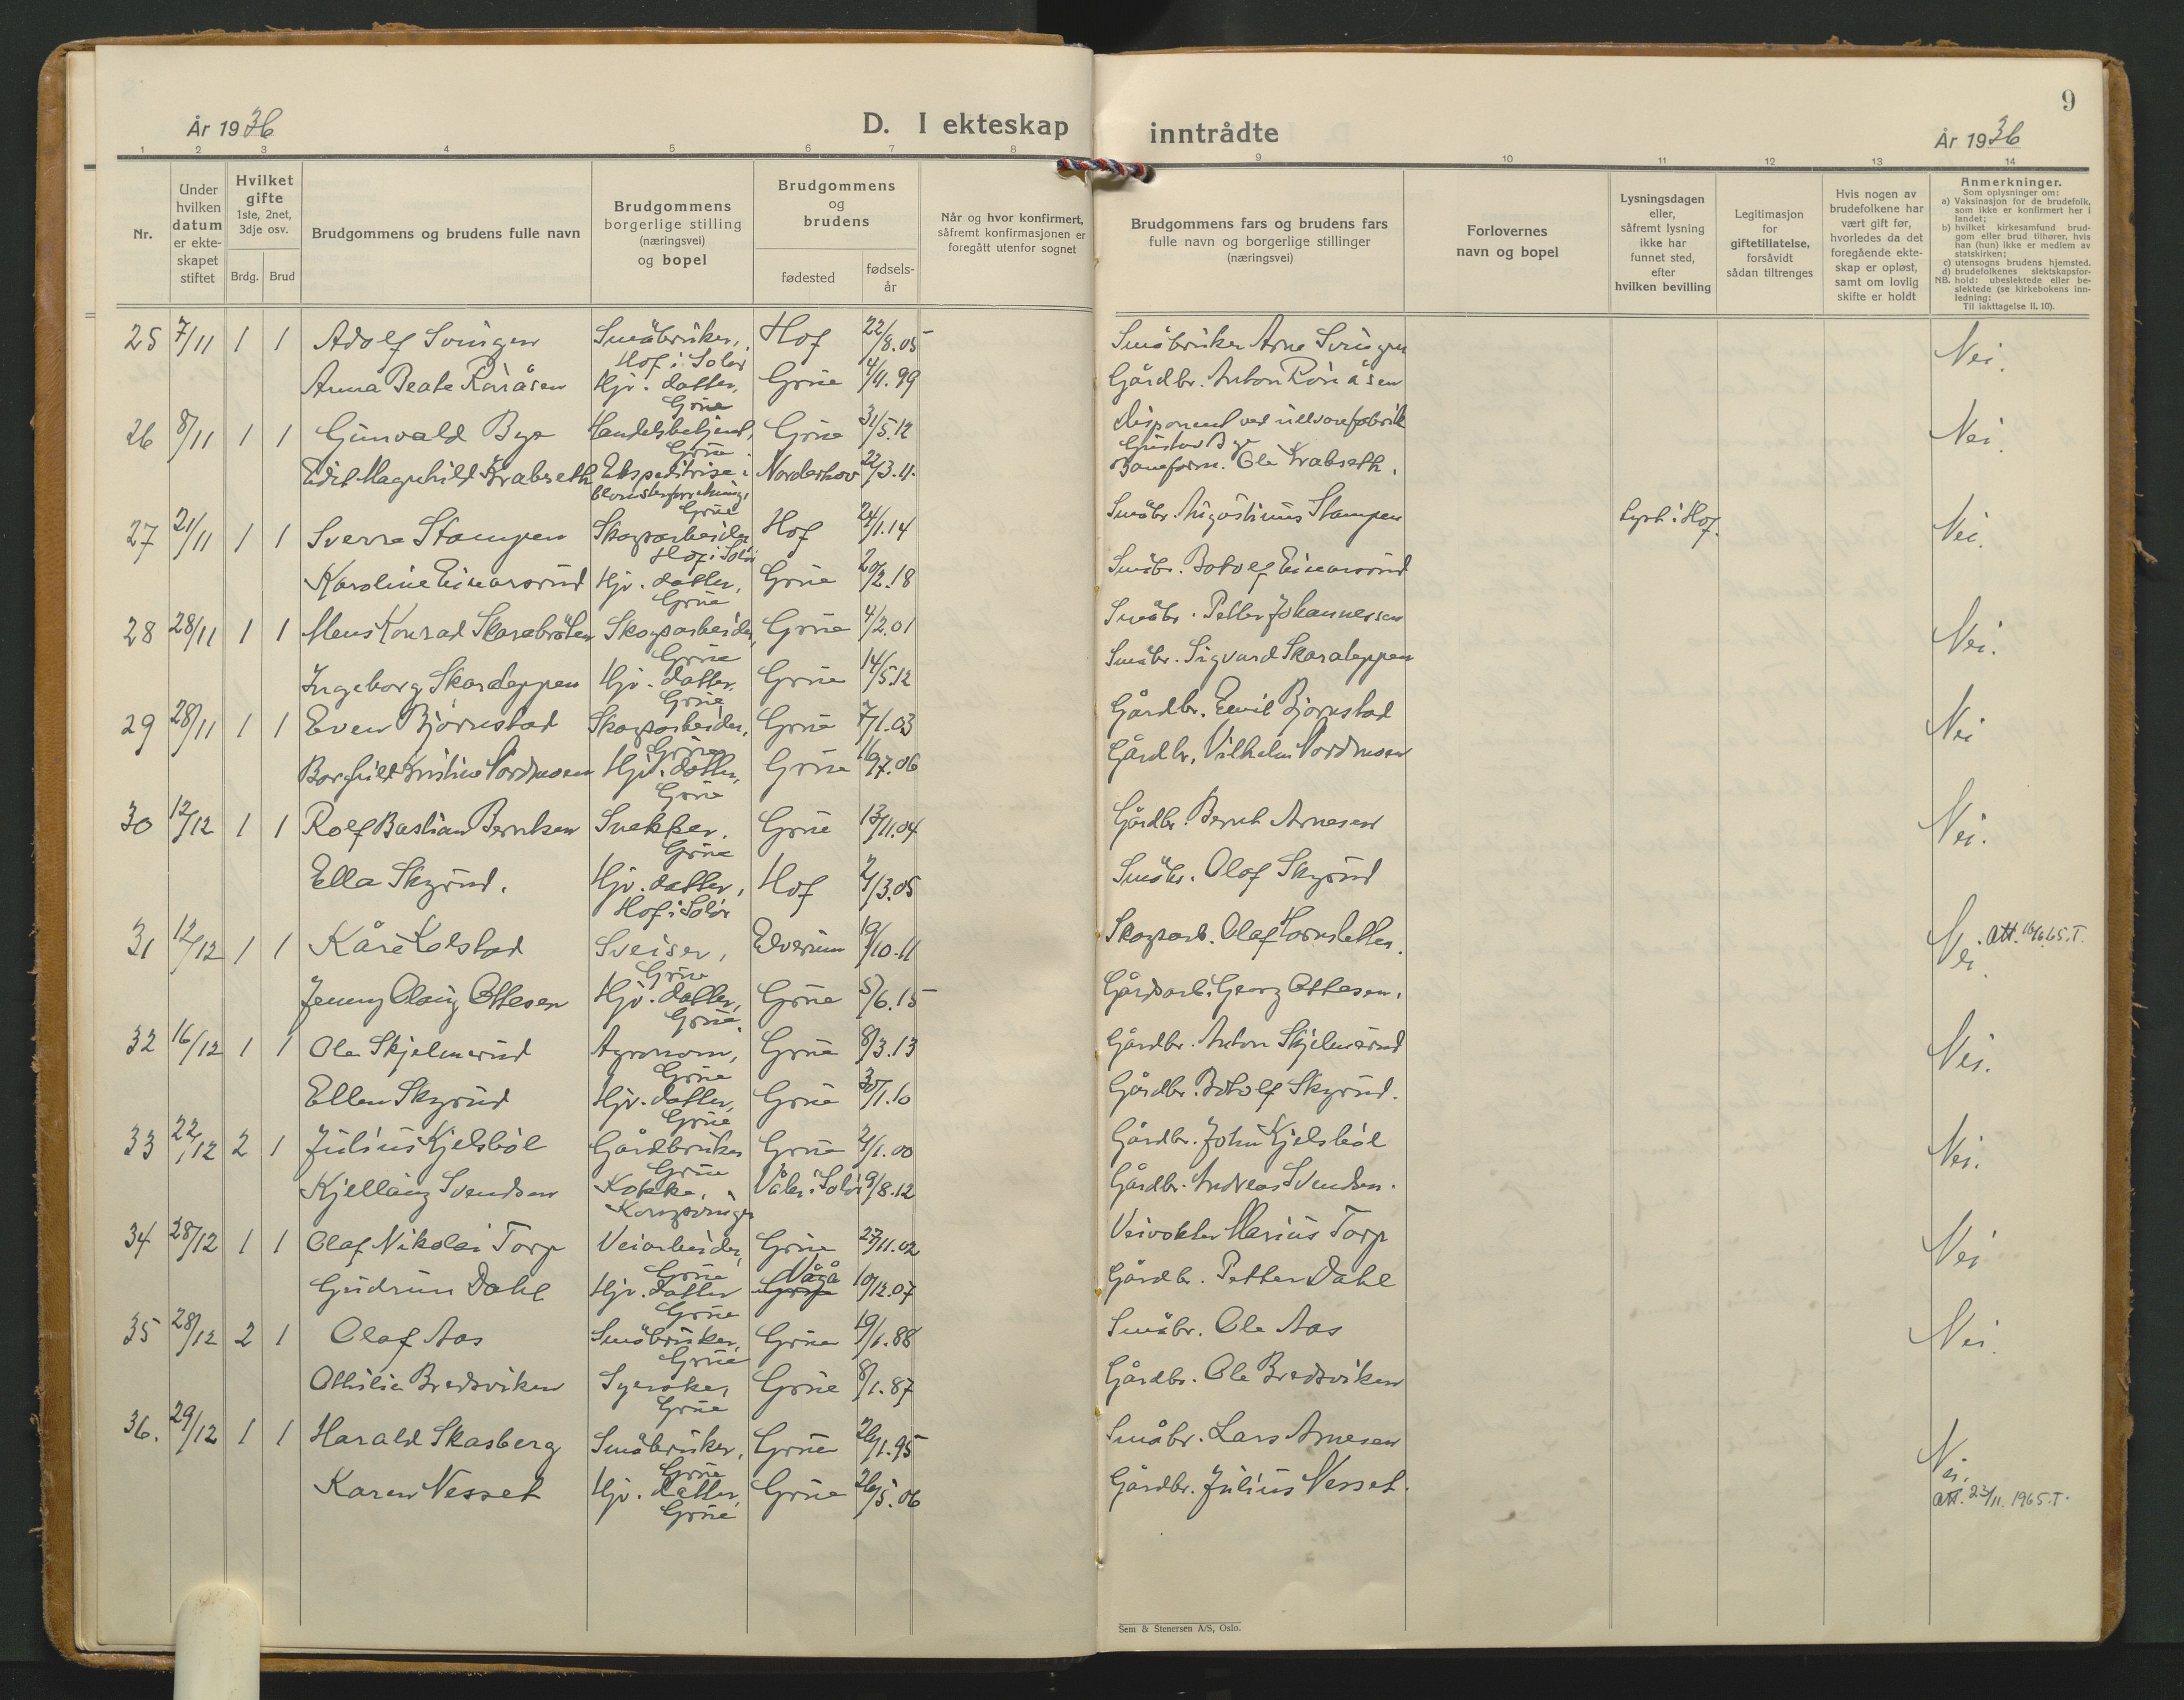 9
År 1936
D. I ekteskap inntrådte
År 1936
1 2 3 4 5 6 7 8 9 10 11 12 13 14
Nr.
Under hvilken datum er ekteskapet stiftet
Hvilket gifte 1ste, 2net, 3dje osv.
Brdg. Brud
Brudgommens og brudens fulle navn
Brudgommens borgerlige stilling (næringsvei) og bopel
Brudgommens og brudens
fødested
fødselsår
Når og hvor konfirmert, såfremt konfirmasjonen er foregått utenfor sognet
Brudgommens fars og brudens fars fulle navn og borgerlige stillinger (næringsvei)
Forlovernes navn og bopel
Lysningsdagen eller, såfremt lysning ikke har funnet sted, efter hvilken bevilling
Legitimasjon for giftetillatelse, forsåvidt sådan tiltrenges
Hvis nogen av brudefolkene har vært gift før, hvorledes da det foregående ekteskap er opløst, samt om lovlig skifte er holdt
Anmerkninger.
Som oplysninger om:
a) Vaksinasjon for de brudefolk, som ikke er konfirmert her i landet;
b) hvilket kirkesamfund brudgom eller brud tilhører, hvis han (hun) ikke er medlem av statskirken;
c) utensogns brudens hjemsted.
d) brudefolkenes slektskapsforhold: ubeslektede eller beslektede (se kirkebokens innledning:
NB. Til iakttagelse II. 10).
25 7/11 1 1 Adolf Svingen Småbruker, Hof i Solør Hof 22/8.05 Småbruker Arne Svingen Nei.
Anna Beate Rönåsen Hjv. datter, Grue Grue 4/11.99 Gårdbr. Anton Rönåsen
26 8/11 1 1 Gunvald Bye Handelsbetjent, Grue Grue 31/5.12 Disponent ved ullvarefabrik Gustav Bye Nei.
Edit Magnhild Krabseth Ekspeditrise i blomsterforretning, Grue Norderhov 22/3.11. Baneform. Ole Krabseth.
27 21/11 1 1 Sverre Stampen Skogsarbeider Hof i Solør Hof 24/1.14 Småbr. Augustinus Stampen Lyst i Hof. Nei.
Karoline Einarsrud Hjv. datter, Grue Grue 20/2.18 Småbr. Botolf Einarsrud
28 28/11 1 1 Mens Konrad Skarabråten Skogsarbeider, Grue Grue 4/2.01 Småbr. Petter Johannessen Nei.
Ingeborg Skaraleppen Hjv. datter, Grue Grue 14/5.12 Småbr. Sigvard Skaraleppen
29 28/11 1 1 Even Bjørnstad Skogsarbeider, Grue Grue 7/1.03 Gårdbr. Emil Bjørnstad Nei
Borghild Kristine Nordmoen Hjv. datter, Grue Grue 16/7.06 Gårdbr. Vilhelm Nordmoen
30 12/12 1 1 Rolf Bastian Berntsen Snekker. Grue Grue 13/11.04 Gårdbr. Bernt Arnesen Nei.
Ella Skyrud. Hjv. datter, Hof i Solör Hof 2/3.05 Småbr. Olof Skyrud
31 12/12 1 1 Kåre Kolstad Sveiser, Grue Elverum 19/10.11 Skogsarb. Olaf Nei. Att. 65.T.
Jenny Olaug Ottesen Hjv. datter, Grue. Grue 5/6.15 Gårdsarb. Georg Ottesen.
32 16/12 1 1 Ole Skjelmerud Agronom, Grue Grue 8/3.13 Gårdbr. Anton Skjelmerud Nei.
Ellen Skyrud Hjv. datter, Grue Grue 30/1.10 Gårdbr. Botolf Skyrud.
33 22/12 2 1 Julius Kjelsböl Gårdbruker Grue Grue 2/1.00 Gårdbr. John Kjelsböl Nei.
Kjellaug Svendsen Kokke, Kongsvinger Våler i Solør 9/8.12 Gårdbr. Andreas Svendsen.
34 28/12 1 1 Olaf Nikolai Torp Veiarbeider, Grue Grue 27/11.02 Veivokter Marius Torp Nei
Gudrun Dahl Hjv. datter Grue Vågå Grue 10/12.07 Gårdbr. Petter Dahl
35 28/12 2 1 Olaf Aas Småbruker, Grue Grue 19/1.88 Småbr. Ole Aas Nei.
Othilie Bredsviken Syerske, Grue Grue 8/1.87 Gårdbr. Ole Bredsviken
36. 29/12 1 1 Harald Skasberg Småbruker, Grue Grue 26/1.95 Småbr. Lars Arnesen Nei.
Karen Nesset Hjv. datter, Grue Grue 26/5.06 Gårdbr. Julius Nesset. Att. 23/11. 1965.T.
Sem & Stenersen A/S, Oslo.